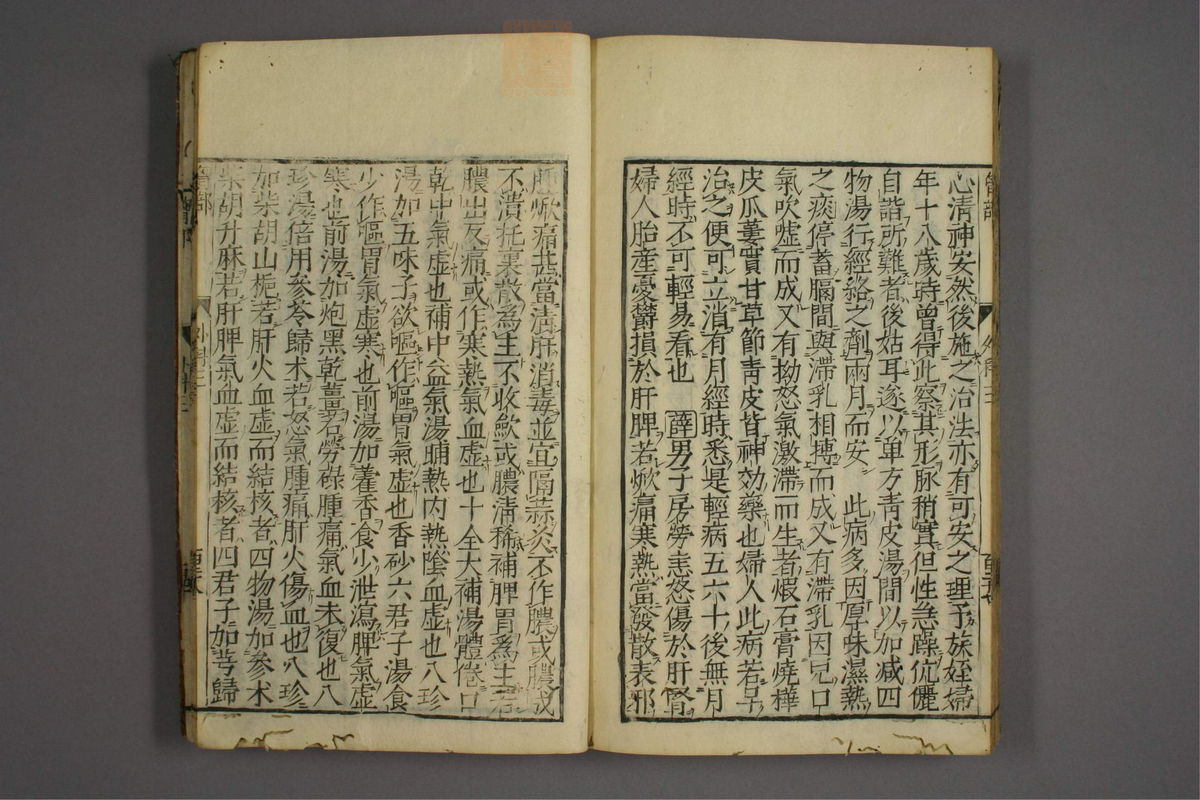 心清神安然後施之治法亦有可安之理予族姪婦
年十八歲時曾得此察其形脉稍實但性急躁伉儷
自諧所難者後姑耳遂以單方青皮湯間以加减四
物湯行經絡之劑兩月而安　此病多因厚味濕熱
之痰停蓄膈間與滯乳相搏而成又有滯乳因兒口
氣吹噓而成又有拗怒氣激滯而生者煆石膏燒樺
皮瓜蔞實甘草節靑皮皆神効藥也婦人此病若早
治之便可立消有月經時悉是輕病五六十後無月
經時不可輕易看也　薛男子房勞恚怒傷於肝腎
婦人胎産憂鬱損於肝脾若焮痛寒熱當發散表邪
腫焮痛甚當淸肝消毒並宜隔蒜灸不作膿或膿成
不潰托裏散爲主不收歛或膿淸稀補脾胃爲主若
膿出反痛或作寒熱氣血虛也十全大補湯體倦口
乾中氣虛也補中益氣湯晡熱内熱陰血虛也八珍
湯加五味子欲嘔作嘔胃氣虛也香砂六君子湯食
少作嘔胃氣虛寒也前湯加藿香食少泄瀉脾氣虛
寒也前湯加炮黑乾薑若勞碌腫痛氣血未復也八
珍湯倍用參芩歸术若怒氣腫痛肝火傷血也八珍
加柴胡山梔若肝火血虛而結核者四物湯加參术
柴胡升麻若肝脾氣血虛而結核者四君子加芎歸